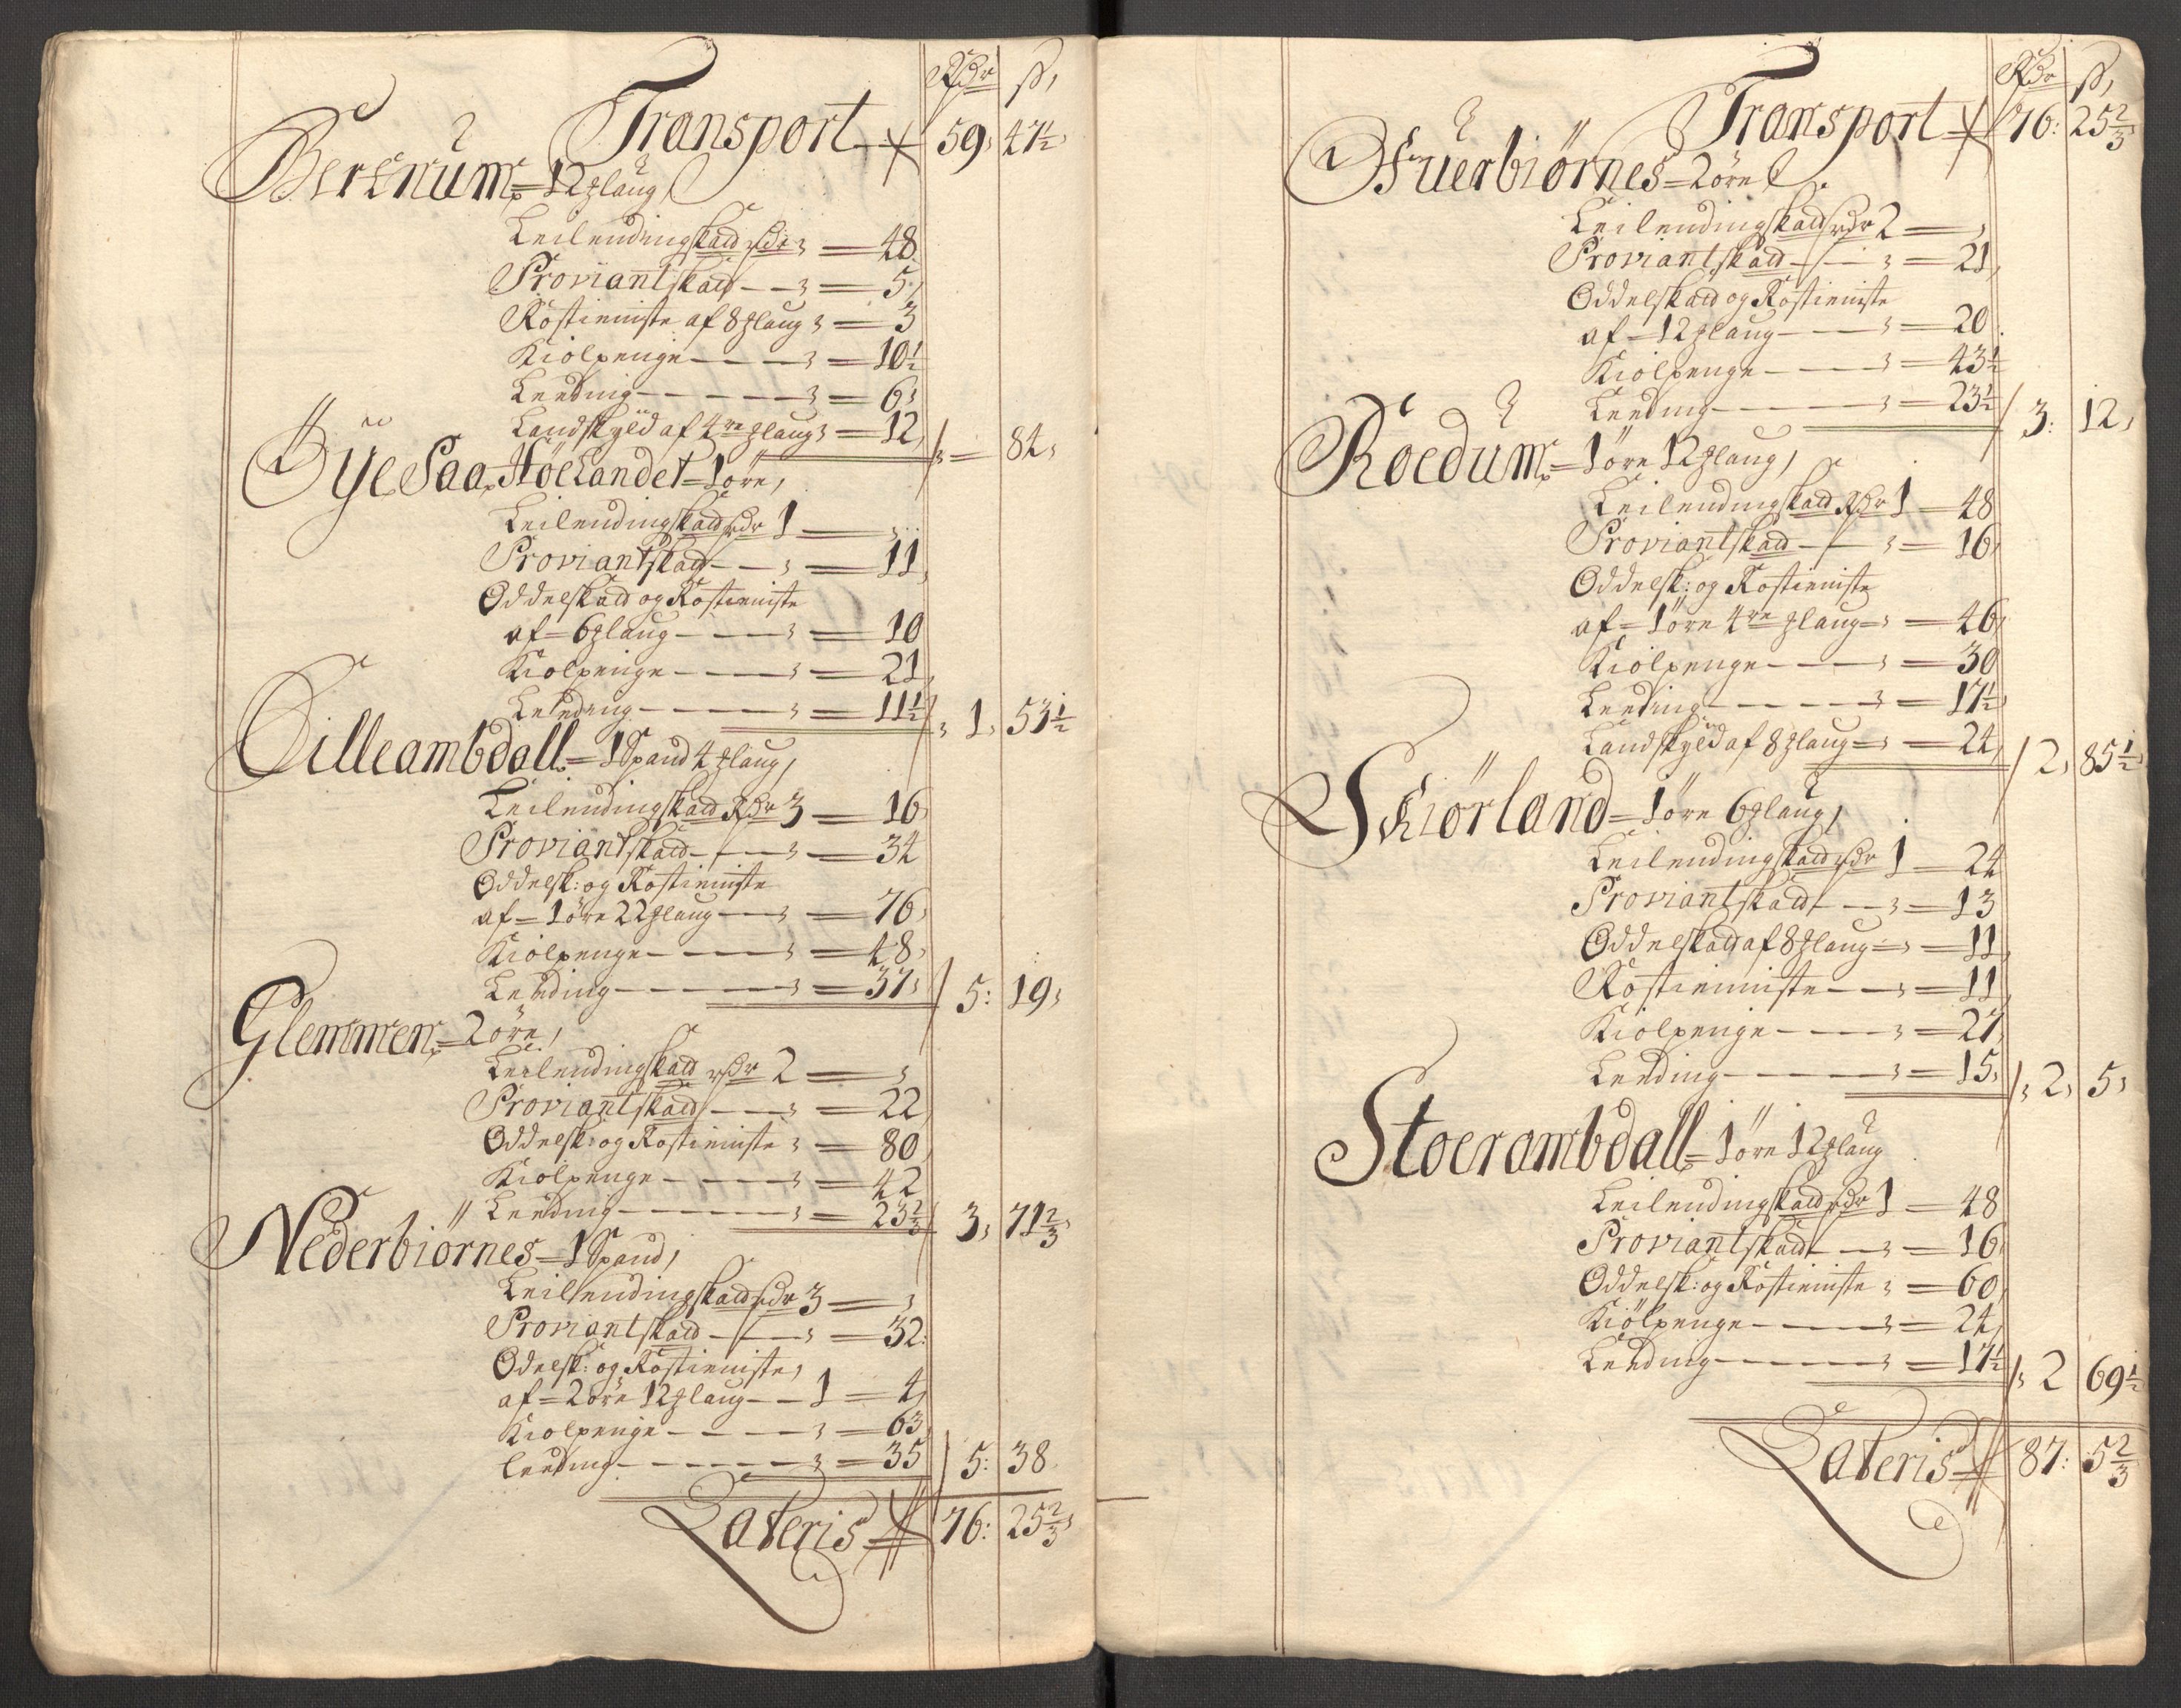 Rdr ß,
Transport 59, 47½,
Berenum = 12 Ɉlaug
Leilendingskatt rdr , = 48
Proviantskatt - - , = 5,
Rostieniste af 8 Ɉlaug , = 3
Kiolpenge - - - , = 10½
Leeding - - - - - , = 6,
Landskÿld af 4re Ɉlaug , = 12, , = 84,
Øÿe Paa Höelandet = 1 öre,
Leilendingskatt rdr 1 = ,
Proviantskatt - - , = 11,
Oddelskatt og Rostieniste
af = 6 Ɉlaug - - - , = 10
Kiolpenge - - - , = 21,
Leeding - - - - , = 11½ , 1, 53½
Lilleambdall = 1 Spand 4 Ɉlaug,
Leilendingskatt Rdr 3 = 16,
Proviantskatt - - , = 34
Oddelsk: og Rostieniste
af = 1 öre 22 Ɉlaug - - , = 76,
Kiolpenge - - - , = 48,
Leeding - - - - , = 37, 5: 19,
Glemmem = 2 öre,
Leilendingskatt rdr 2 = ,
Proviantskatt - - , = 22,
Oddelsk: og Rostieniste , = 80,
Kiolpenge - - - , = 42
Leeding - - - - , = 23⅔ 3, 71⅔,
Nederbiörnes = 1 Spand,
Leilendingskatt rdr 3 = ,
Proviantskatt - - , = 32:
Odelsk: og Rostieniste,
af = 2 öre 12 Ɉlaug - - 1 = 4,
Kiolpenge - - - - , = 63,
Leeding - - - - - , = 35 5: 38.
Lateris 76: 25⅔,
Rdr ß,
Transport 76: 25⅔,
Ofuerbiörnes = 2 öre
Leilendingskatt rdr 2 = ,
Proviantskatt - - , = 21,
Oddelskatt og Rostieniste
af = 12 Ɉlaug - - - , = 20.
Kiolpenge - - - , = 43½
Leeding - - - - , = 23½ 3: 12,
Roedum = 1 öre 12 Ɉlaug,
Leilendingskatt Rdr 1 = 48
Proviantskatt - - , = 16,
Oddelsk: og Rostieniste
af = 1 öre 4re Ɉlaug = , = 46,
Kiolpenge - - - , = 30
Leeding - - - - - , = 17½,
Landskÿld af 8 Ɉlaug = , = 24, 2, 85½,
Skiörland = 1 öre 6 Ɉlaug,
Leilendingskatt rdr 1 = 24
Proviantskatt - - , = 13
Oddelskatt af 8 Ɉlaug = , = 11,
Rostieniste - - , = 11,
Kiolpenge - - - - , = 27,
Leeding - - - - - , = 15, , 2, 5,
Stoerambdall = 1 öre 12 Ɉlaug
Leilendingskatt rdr 1 = 48
Proviantskatt - - , = 16,
Oddelsk: og Rostieniste , = 60,
Kiölpenge - - - - , = 24,
Leeding - - - - - , = 17½ , 2 69½
Lateris 87: 5⅔